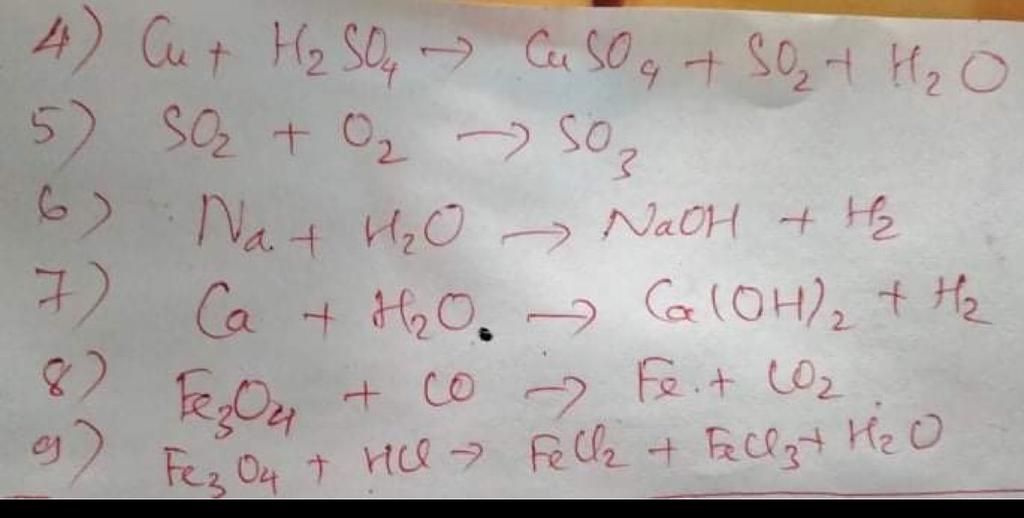 4) Cu + H₂SO₄ → CuSO₄ + SO₂ + H₂O
5) SO₂ + O₂ → SO₃
6) Na + H₂O → NaOH + H₂
7) Ca + H₂O → Ca(OH)₂ + H₂
8) Fe₃O₄ + CO → Fe + CO₂
9) Fe₃O₄ + HCl → FeCl₂ + FeCl₃ + H₂O